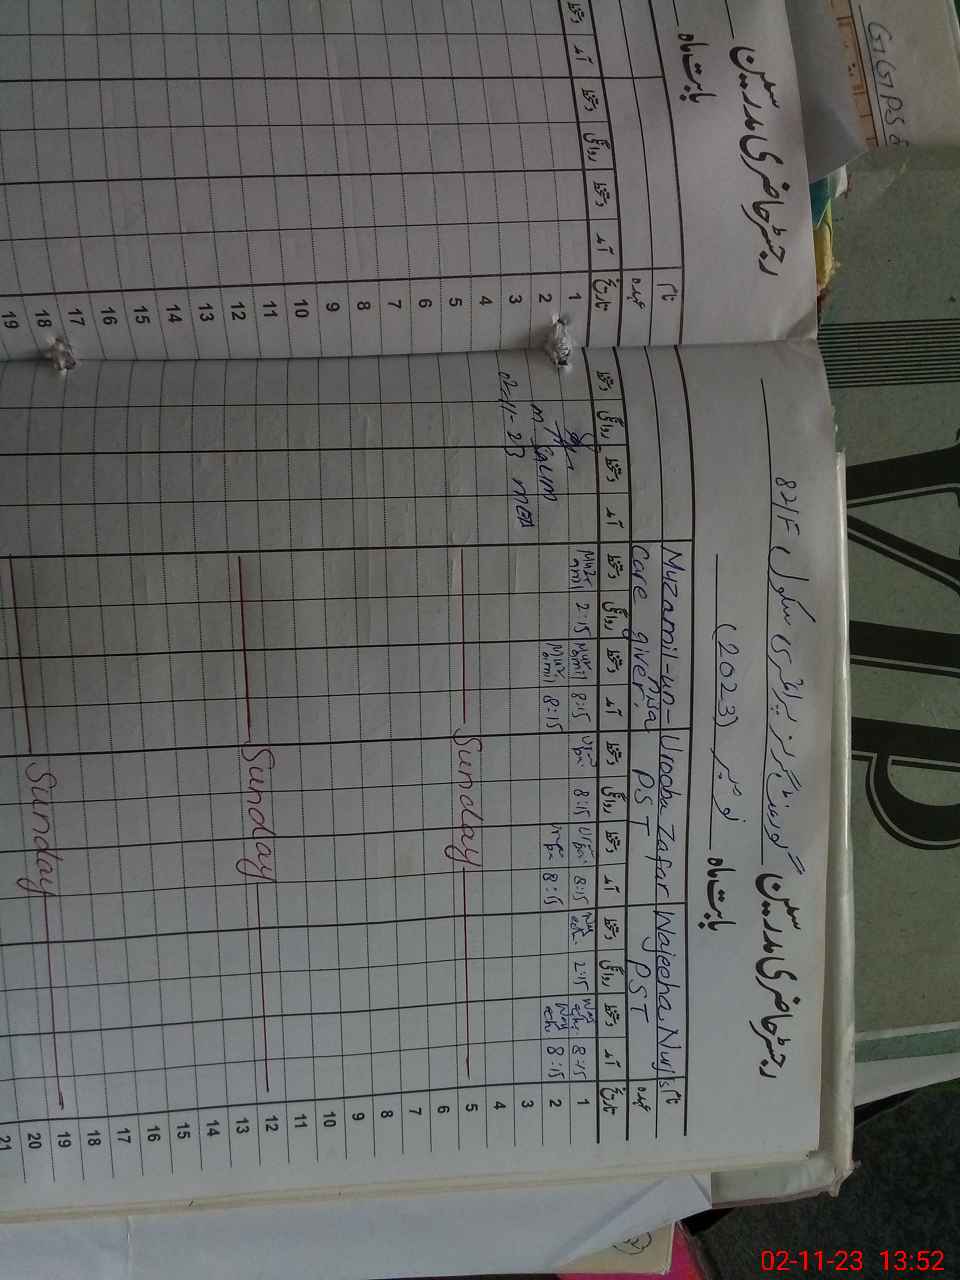 رجسٹر حاضری مدرسین گورنمنٹ گرلز پرائمری سکول 82/F
بابت ماہ نومبر (2023)
نام Wajeeha Nurjs Urooba Zafar Muzamil-un-Nisa
عہدہ PST PST Care giver
تاریخ آمد دستخط روانگی دستخط آمد دستخط روانگی دستخط آمد دستخط روانگی دستخط آمد دستخط روانگی دستخط
1 8:15 2:15 8:15 8:15 8:15 Muzamil 2:15 Muzamil
2 8:15 8:15 8:15 Muzamil
M. SALIM
3
02-11-23 MEA
4
5 Sunday
6
7
8
9
10
11
12 Sunday
13
14
15
16
17
18
19 Sunday
20
21
رجسٹر حاضری مدرسین
بابت ماہ
نام
عہدہ
تاریخ آمد دستخط روانگی دستخط آمد دستخط
1
2
3
4
5
6
7
8
9
10
11
12
13
14
15
16
17
18
19
GGPS
02-11-23 13:52